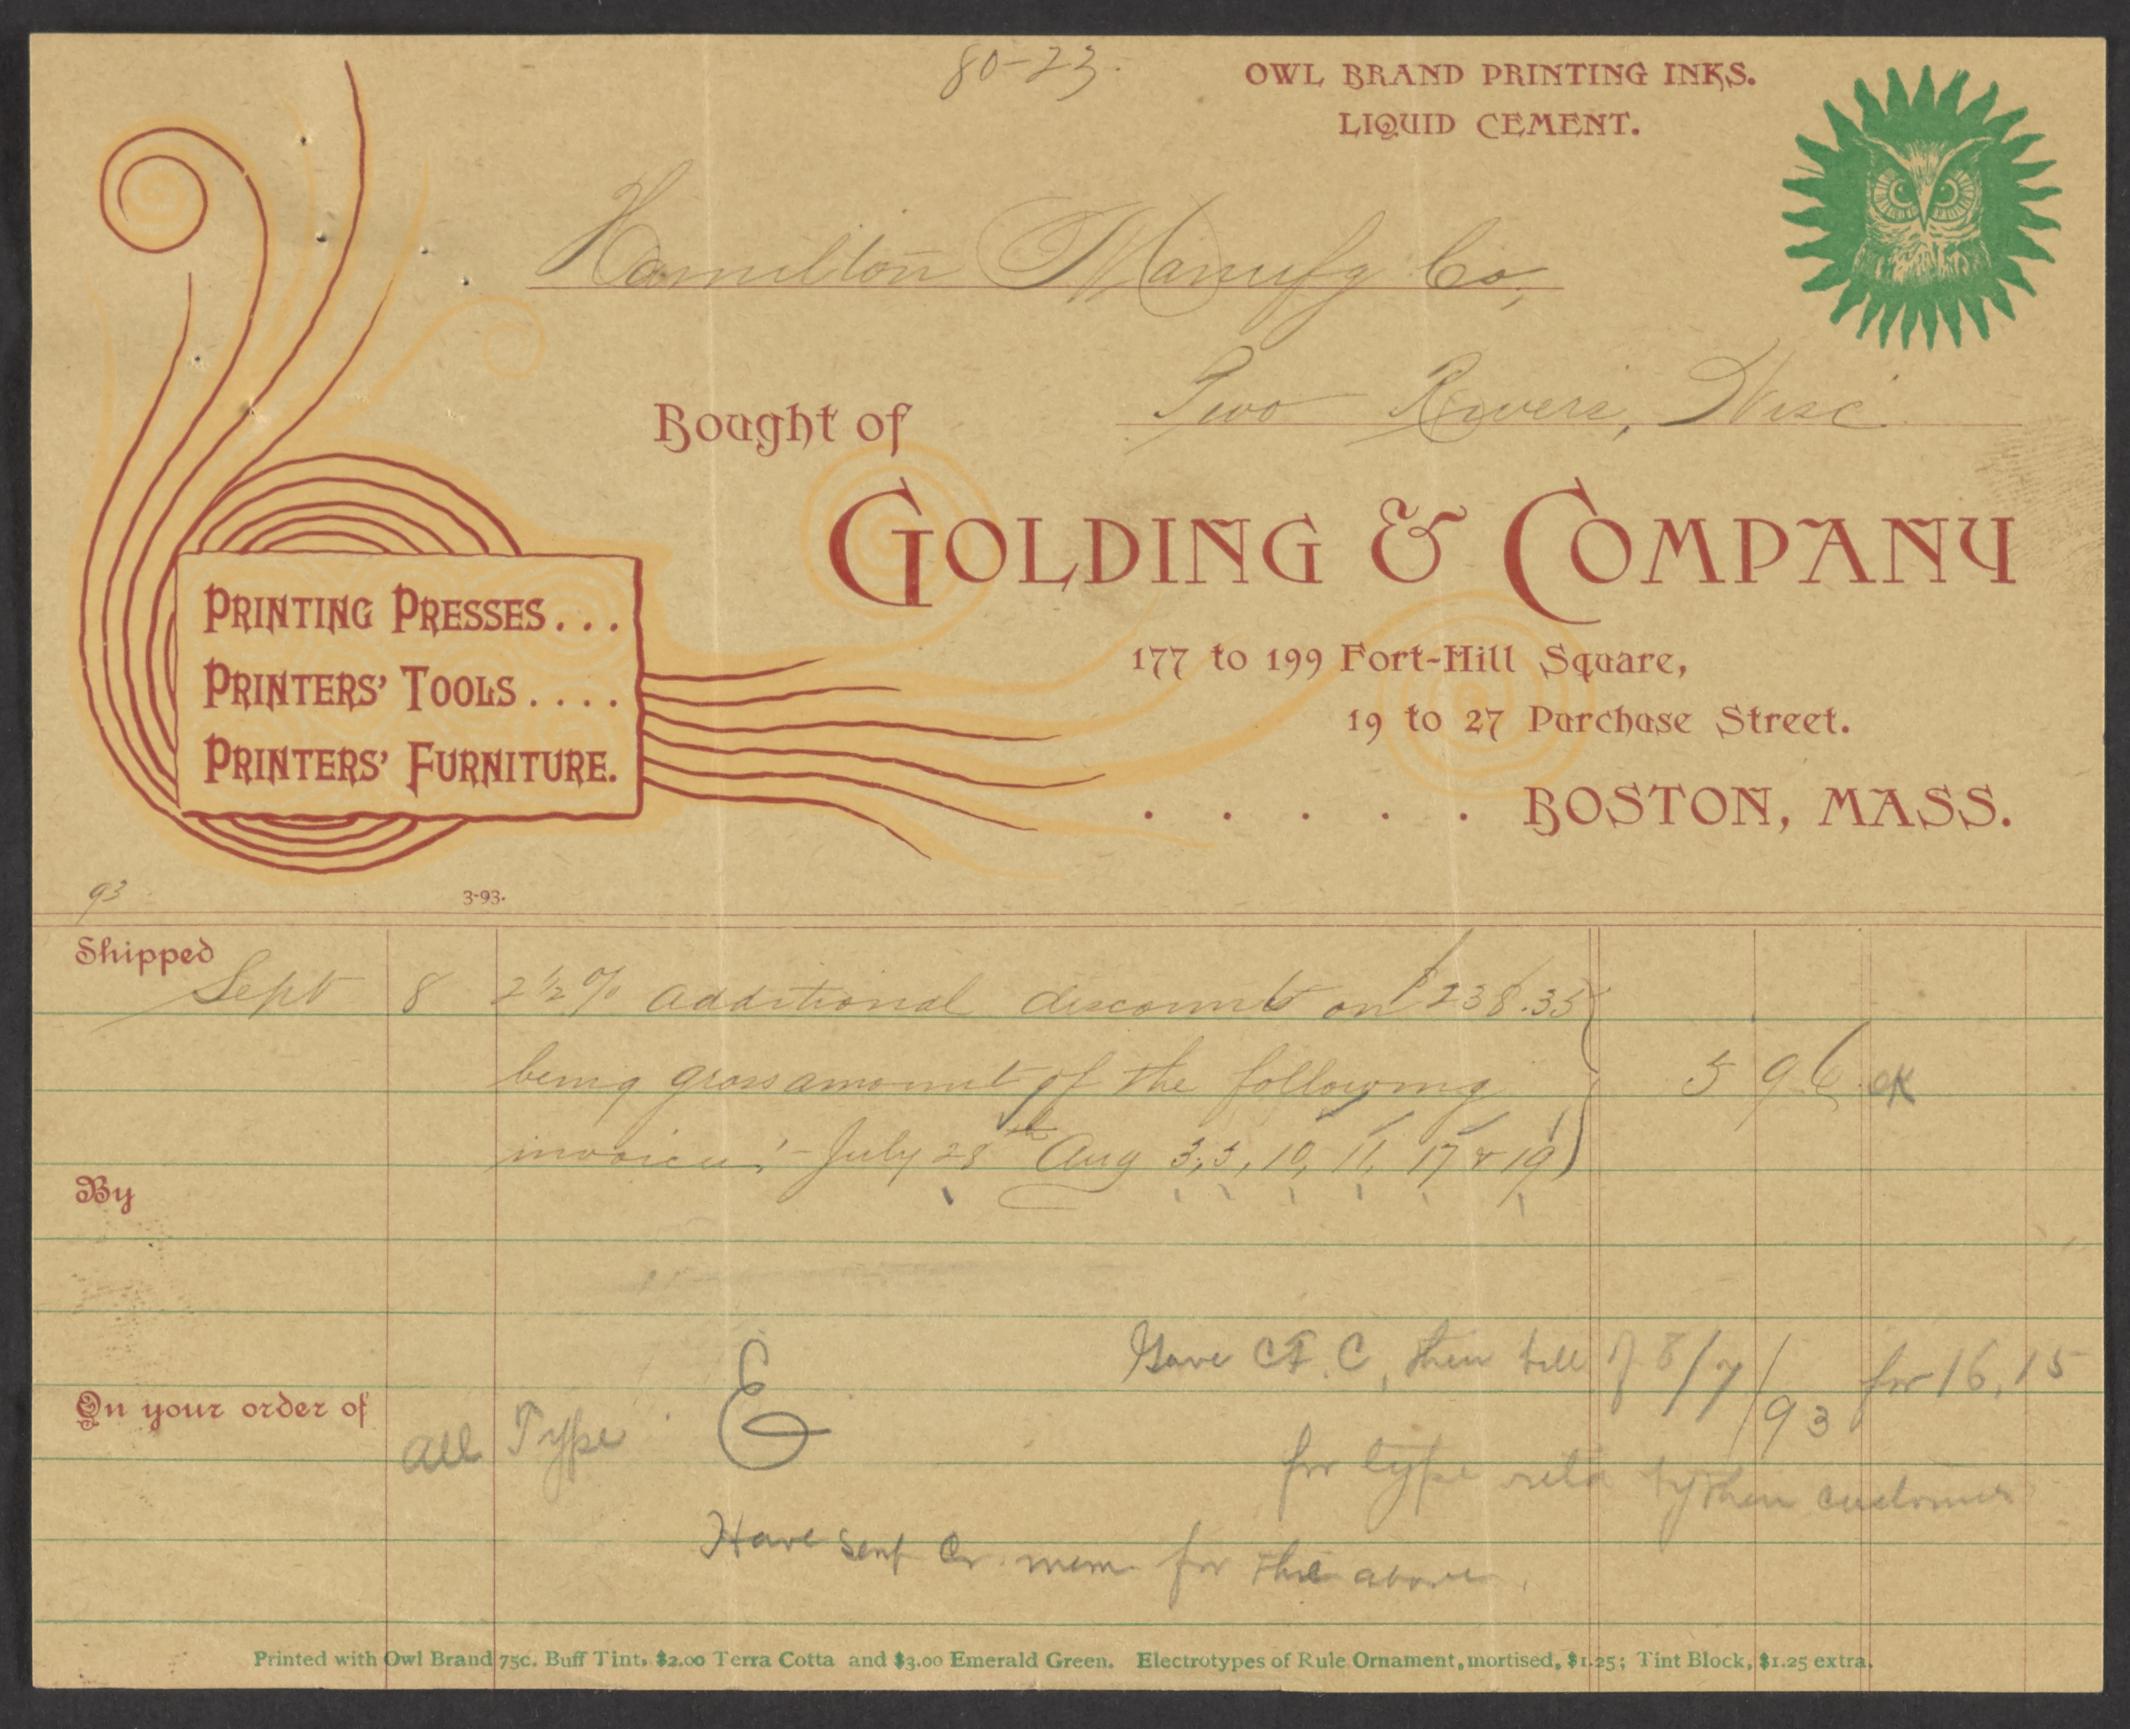 80-23.
OWL BRAND PRINTING INKS.
LIQUID CEMENT.
Hamilton Manufg Co,
Two Rivers, Wisc
Bought of
GOLDING & COMPANY
PRINTING PRESSES...
PRINTERS' TOOLS....
PRINTERS' FURNITURE.
177 to 199 Fort-Hill Square,
19 to 27 Purchase Street.
. . . . . BOSTON, MASS.
93
3-93.
Shipped
Sept 8 2½% additional discount on $238.35
being gross amount of the following 5 96 OK
invoices:- July 28th Aug 3, 5, 10, 11, 17 & 19
By
Gave C. , their bill of 8/7/93 for 16,15
On your order of
All Type E
for type retd by their customer
Have sent Cr. mem for the above.
Printed with Owl Brand 75c. Buff Tint, $2.00 Terra Cotta and $3.00 Emerald Green. Electrotypes of Rule Ornament, mortised, $1.25; Tint Block, $1.25 extra.